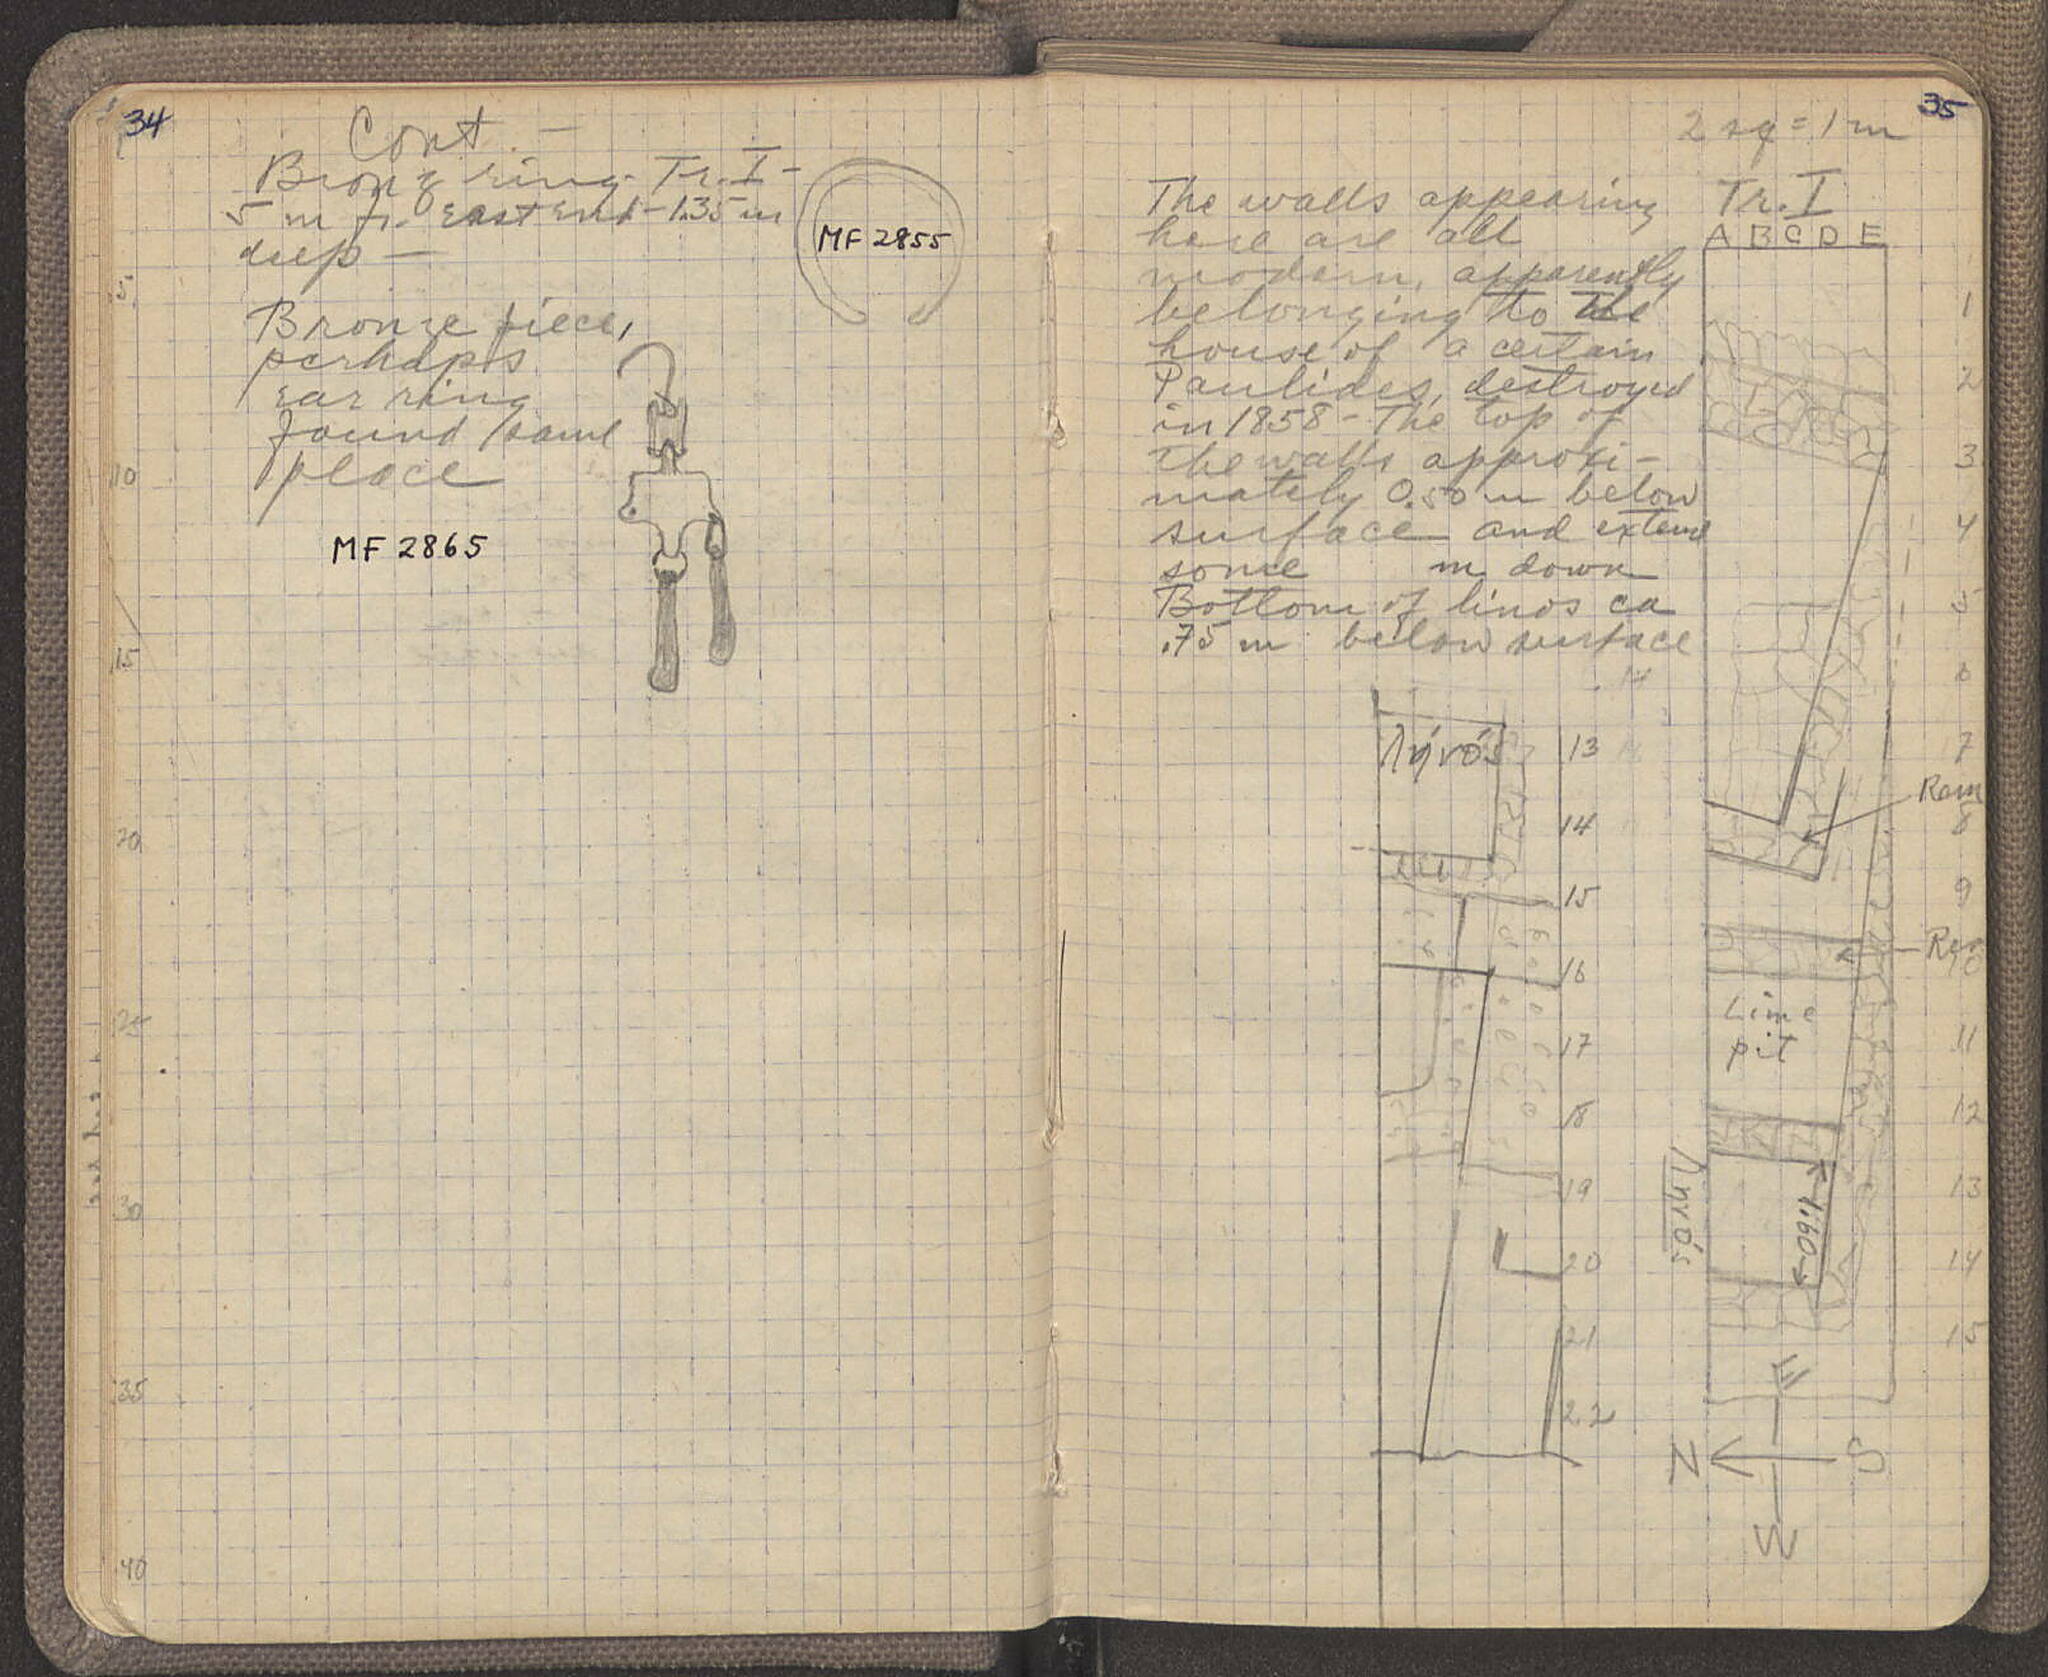 34
Cont. —
Bronz ring. Tr. I -
5 m fr. east end - 1.35 m
deep —
MF 2855
Bronze piece,
perhaps
ear ring
found same
place
MF 2865
5
10
15
20
25
30
35
40
35
2 sq = 1 m
The walls appearing
here are all
modern, apparently
belonging to the
house of a certain
Paulides, destroyed
in 1858 - The top of
the walls approxi-
mately 0.50 m below
surface and extend
some m down
Bottom of linos ca
.75 m below surface
14
ληνός
13
14
15
16
17
18
19
20
21
22
Tr. I
A B C D E
1
2
3
4
5
6
7
Rem
8
9
Rem
10
Lime
pit
11
12
13
14
15
ληνός
1.60
E
N S
W